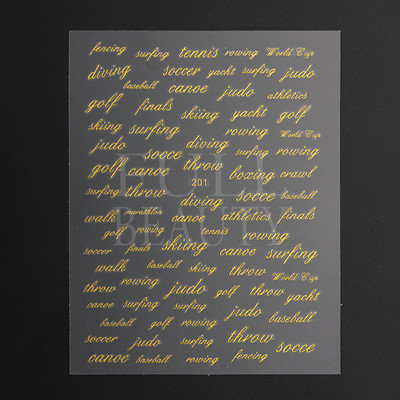 fencing surfing tennis rowing World Cup
diving soccer yacht surfing judo
baseball canoe judo athletics
golf finals skiing yacht golf
skiing surfing rowing World Cup
judo soccer diving surfing
golf canoe throw boxing crawl
201
surfing throw diving socce baseball
walk marathlon canoe athletics finals
golf rowing tennis rowing
soccer finals skiing canoe surfing
walk baseball skiing throw World Cup
throw rowing judo golf throw yacht
canoe surfing surfing judo
baseball golf rowing baseball
soccer judo surfing throw socce
canoe baseball rowing fencing
BORN BEAUTY